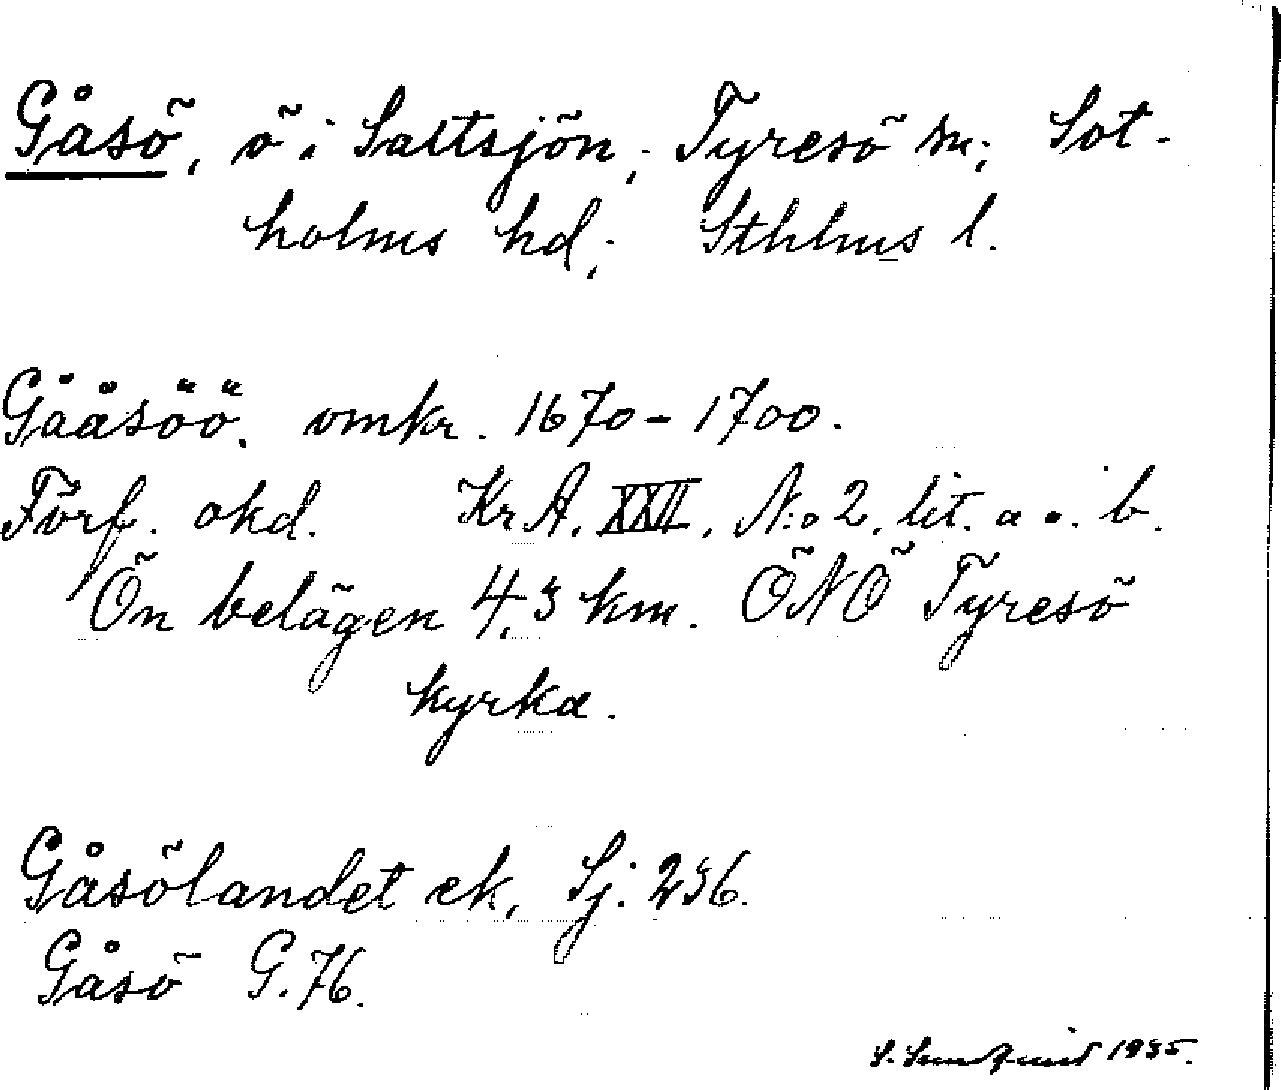 Gåsö, ö i Saltsjön; Tyresö sn; Sot-
holms hd; Sthlms l.
Gååsöö. omkr. 1670-1700.
Förf. okd. Kr A. XXII. N:o 2. lit. a o. b.
Ön belägen 4,3 km. ÖNÖ Tyresö
kyrka.
Gåsölandet ek, Sj. 236.
Gåsö G. 76.
S. 1935.